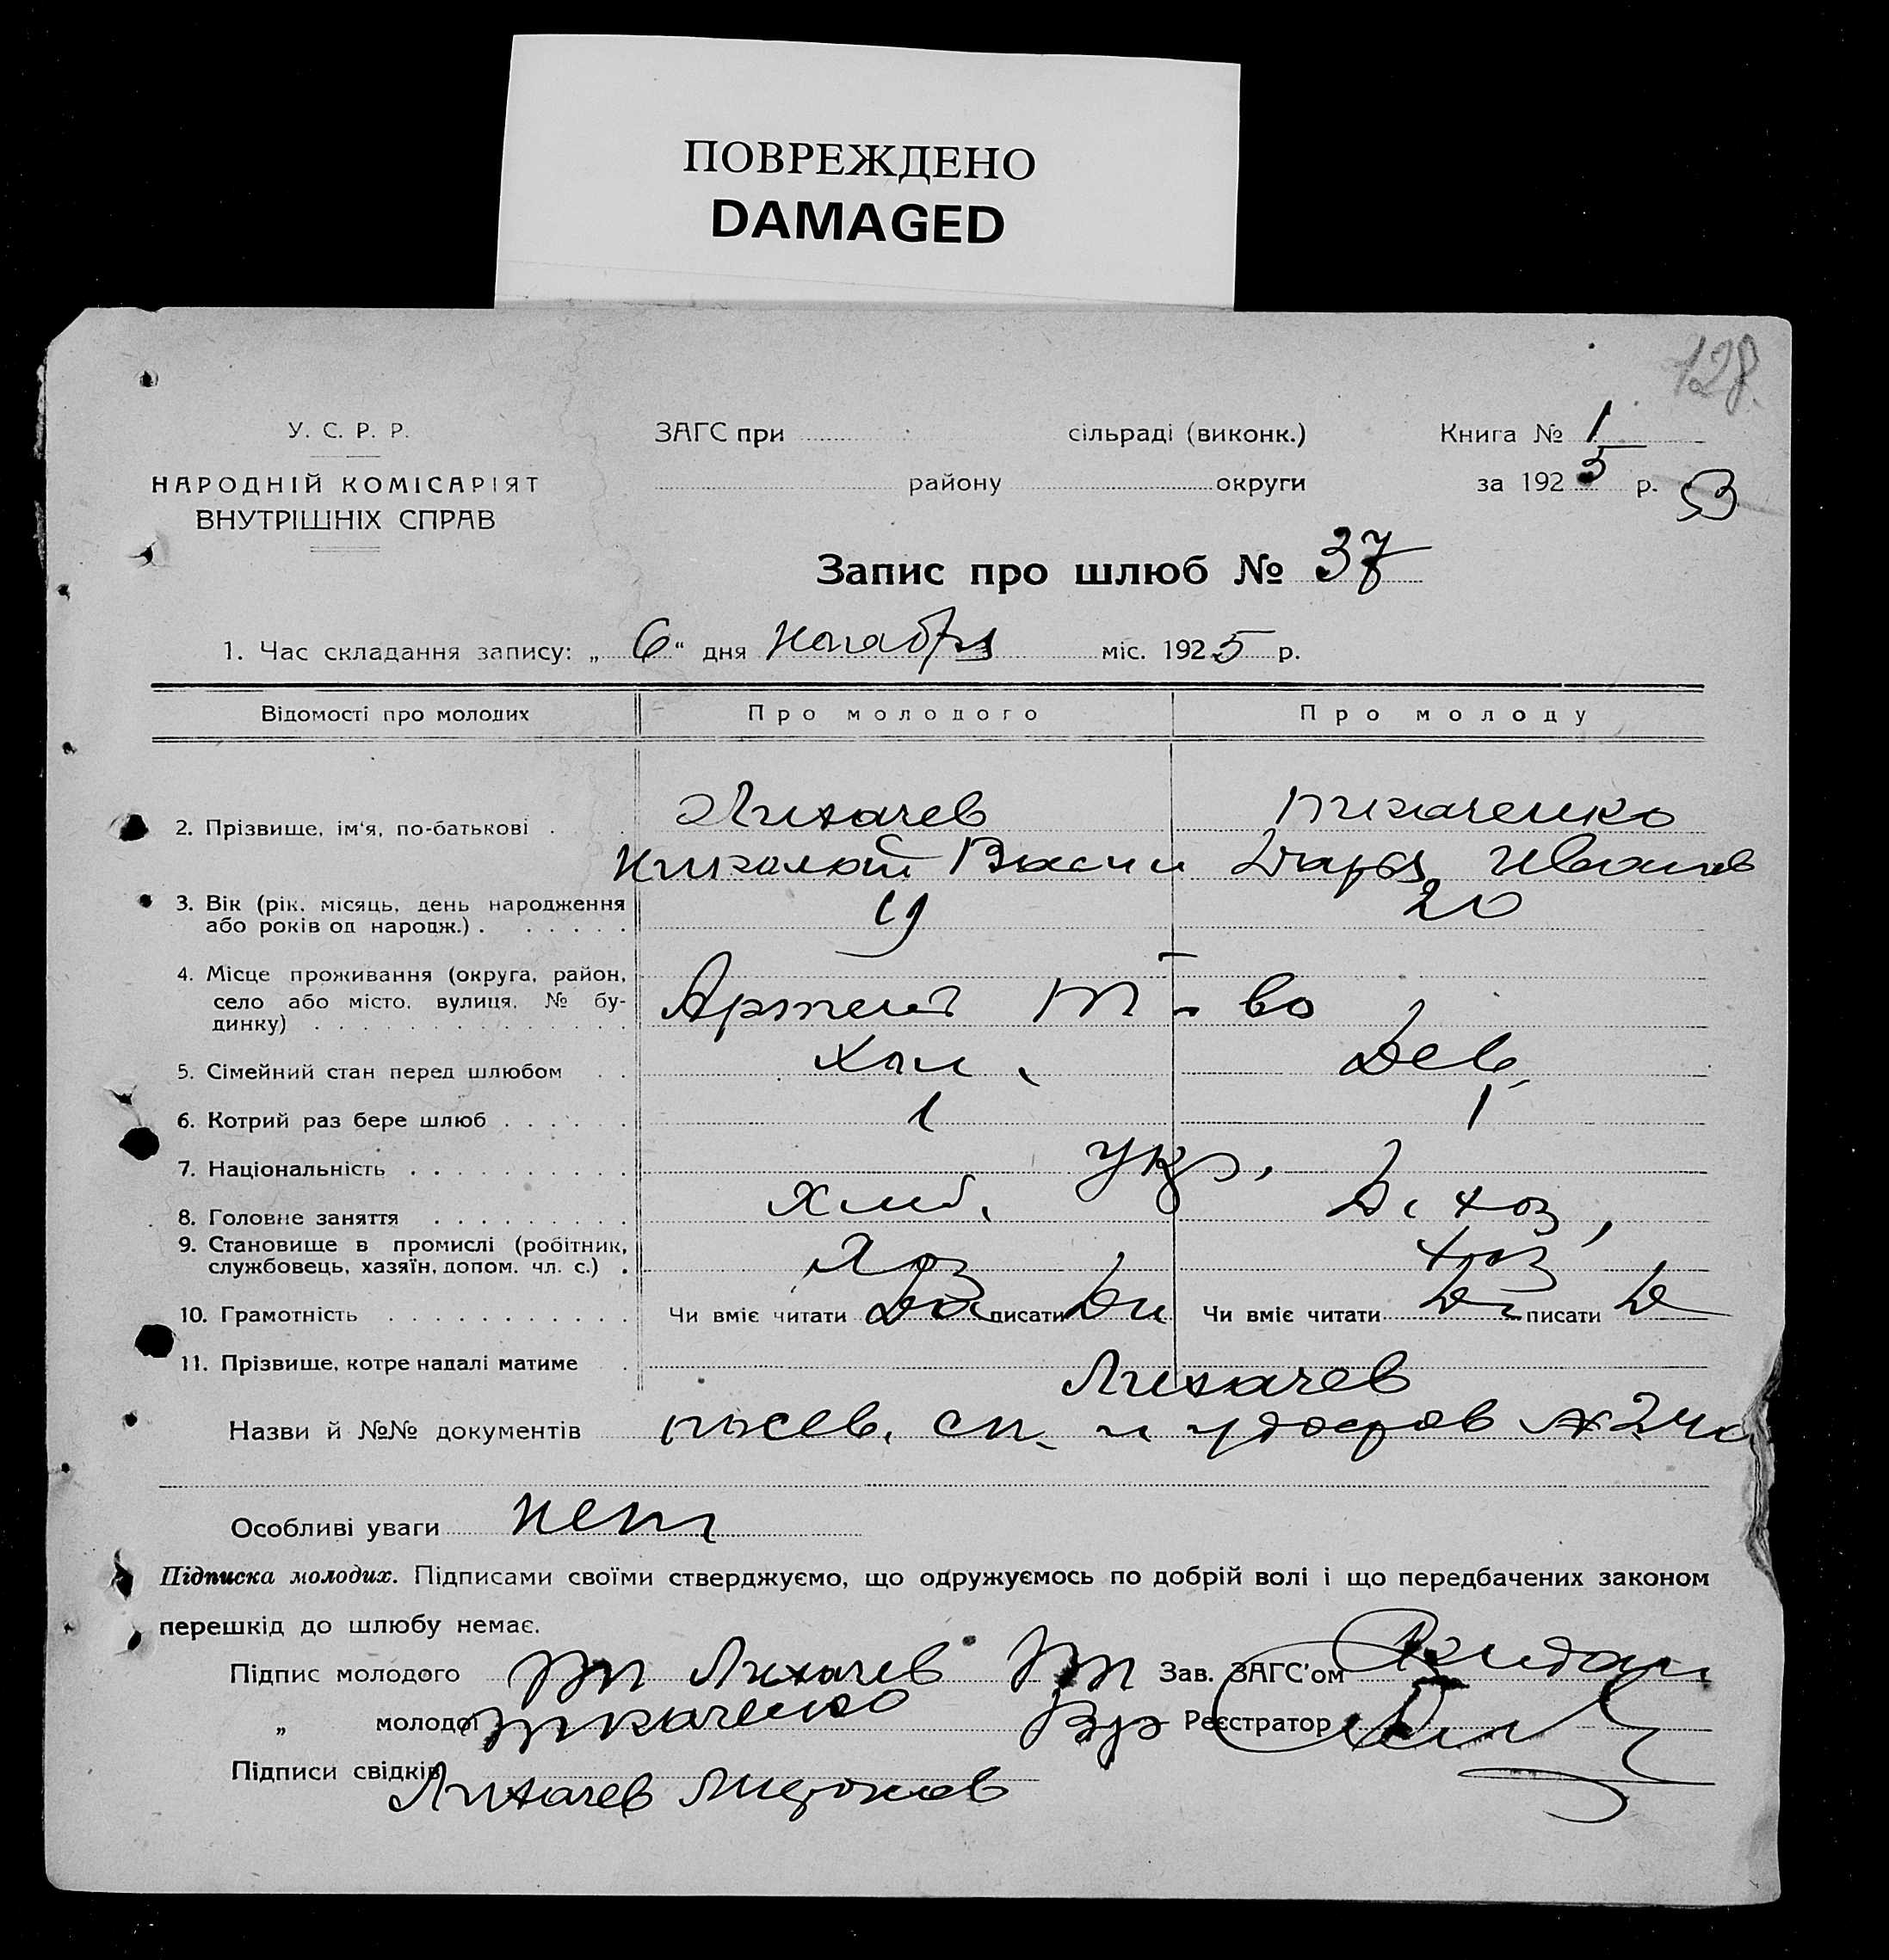 ПОВРЕЖДЕНО
DAMAGED
128.
У. С. Р. Р. ЗАГС при сільраді (виконк.) Книга № 1
НАРОДНІЙ КОМІСАРІЯТ району округи за 1925 р. 53
ВНУТРІШНІХ СПРАВ
Запис про шлюб № 37
1. Час складання запису: „ 6 “ дня Ноября міс. 1925 р.
Відомості про молодих Про молодого Про молоду
2. Прізвище, ім'я, по-батькові . . Лихачев Ткаченко
Николай Васил Дарья Иванов
3. Вік (рік, місяць, день народження 19 20
або років од народж.) . . . . . .
4. Місце проживання (округа, район,
село або місто, вулиця, № бу- Артем Т-во
динку) . . . . . . . . . . . . . .
5. Сімейний стан перед шлюбом . . Хол. Дев.
6. Котрий раз бере шлюб . . . . . . 1 1
7. Національність . . . . . . . . . . Укр.
8. Головне заняття . . . . . . . . . Хлиб. Д. хоз,
9. Становище в промислі (робітник,
службовець, хазяїн, допом. чл. с.) . Хоз хоз
10. Грамотність . . . . . . . . . . . Чи вміє читати Да писати Да Чи вміє читати Да писати Д
11. Прізвище, котре надалі матиме . Лихачев
Назви й №№ документів посев. сп. и удостов №
Особливі уваги нет
Підписка молодих. Підписами своїми стверджуємо, що одружуємось по добрій волі і що передбачених законом
перешкід до шлюбу немає.
Підпис молодого Лихачев Зав. ЗАГС'ом
„ молодої Ткаченко Вр Реєстратор
Підписи свідків Лихачев